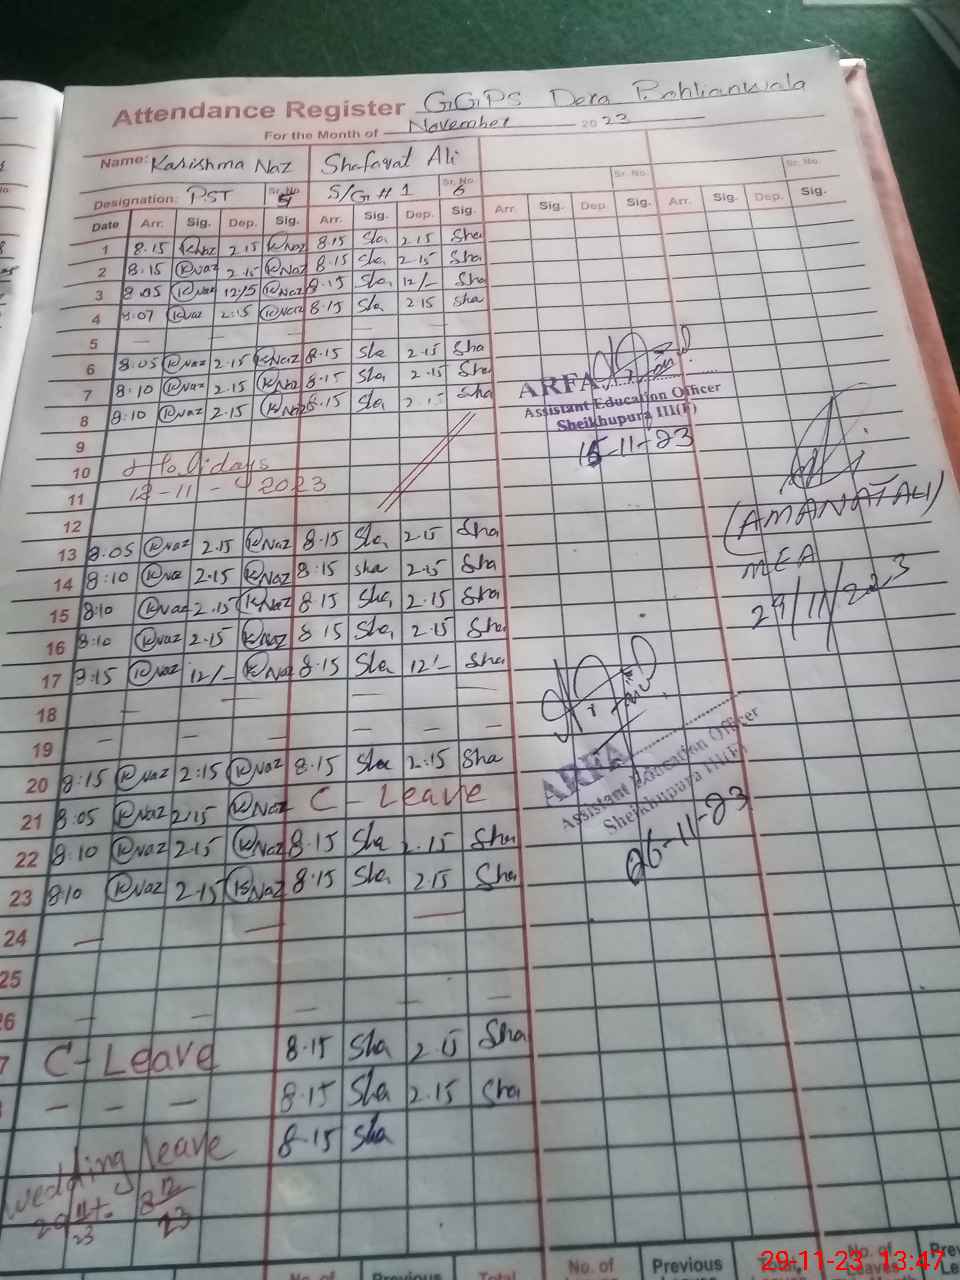 Attendance Register GGPS Dera Bohlianwala
For the Month of November 2023
Name: Karishma Naz Shafaqat Ali
Sr. No. Sr. No.
Designation: PST Sr. No. S/G # 1 Sr. No. 6
Date Arr. Sig. Dep. Sig. Arr. Sig. Dep. Sig. Arr. Sig. Dep. Sig. Arr. Sig. Dep. Sig.
1 8.15 KNaz 2.15 KNaz 8.15 Sha 2.15 Sha
2 8.15 KNaz 2.15 KNaz 8.15 Sha 2.15 Sha
3 8.05 KNaz 12/5 KNaz 8.15 Sha 12/- Sha
4 8.07 KNaz 2.15 KNaz 8.15 Sha 2.15 Sha
5 — — — —
6 8.05 KNaz 2.15 KNaz 8.15 Sha 2.15 Sha
7 8.10 KNaz 2.15 KNaz 8.15 Sha 2.15 Sha
8 8.10 KNaz 2.15 KNaz 8.15 Sha 2.15 Sha
ARFA
Assistant Education Officer
Sheikhupura III(F)
15-11-23
9
10 Holidays
11 12-11-2023
12
13 8.05 KNaz 2.15 KNaz 8.15 Sha 2.15 Sha
14 8:10 KNaz 2.15 KNaz 8:15 Sha 2.15 Sha
15 8:10 KNaz 2.15 KNaz 8.15 Sha 2.15 Sha
16 8:10 KNaz 2.15 KNaz 8.15 Sha 2.15 Sha
17 8:15 KNaz 12/- KNaz 8.15 Sha 12/- Sha
(AMANAT ALI)
MEA
29/11/2023
18 — — — —
19 — — — —
20 8:15 KNaz 2:15 KNaz 8:15 Sha 2:15 Sha
21 8:05 KNaz 2:15 KNaz C - Leave
22 8:10 KNaz 2.15 KNaz 8.15 Sha 2.15 Sha
23 8:10 KNaz 2.15 KNaz 8.15 Sha 2.15 Sha
ARFA
Assistant Education Officer
Sheikhupura III(F)
26-11-23
24 — — —
25
26 — — — — —
7 C - Leave 8.15 Sha 2.15 Sha
— — — 8.15 Sha 2.15 Sha
wedding leave 8.15 Sha
No. of Previous Total No. of Previous Total No. of Leaves Pre
29-11-23 13:47